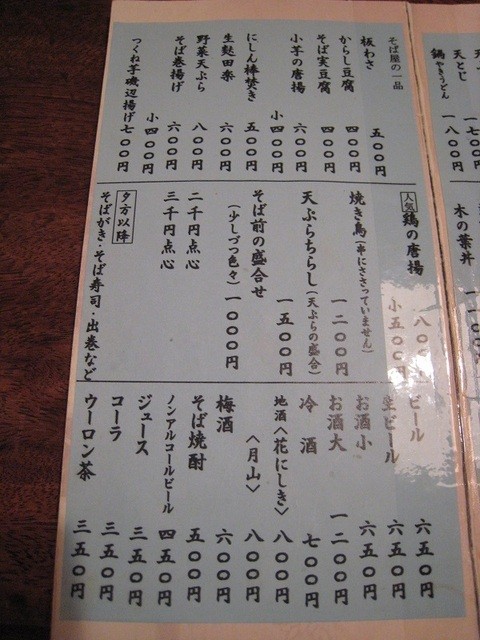 天とじ 一七〇〇円
鍋やきうどん 一八〇〇円
木の葉丼
そば屋の一品
板わさ 五〇〇円
からし豆腐 四〇〇円
そば実豆腐 四〇〇円
小芋の唐揚 六〇〇円
小 四〇〇円
にしん棒焚き 五〇〇円
生麩田楽 六〇〇円
野菜天ぷら 八〇〇円
そば巻揚げ 六〇〇円
小 四〇〇円
つくね芋磯辺揚げ 七〇〇円
人気 鶏の唐揚 八〇〇円
小 五〇〇円
焼き鳥(串にささっていません) 一二〇〇円
天ぷらちらし(天ぷらの盛合) 一五〇〇円
そば前の盛合せ
(少しづつ色々) 一〇〇〇円
二千円点心
三千円点心
夕方以降
そばがき・そば寿司・出巻など
ビール 六五〇円
生ビール 六五〇円
お酒小 六五〇円
お酒大 一二〇〇円
冷酒 七〇〇円
地酒〈花にしき〉 八〇〇円
〈月山〉 八〇〇円
梅酒 六〇〇円
そば焼酎 五〇〇円
ノンアルコールビール 四五〇円
ジュース 三五〇円
コーラ 三五〇円
ウーロン茶 三五〇円